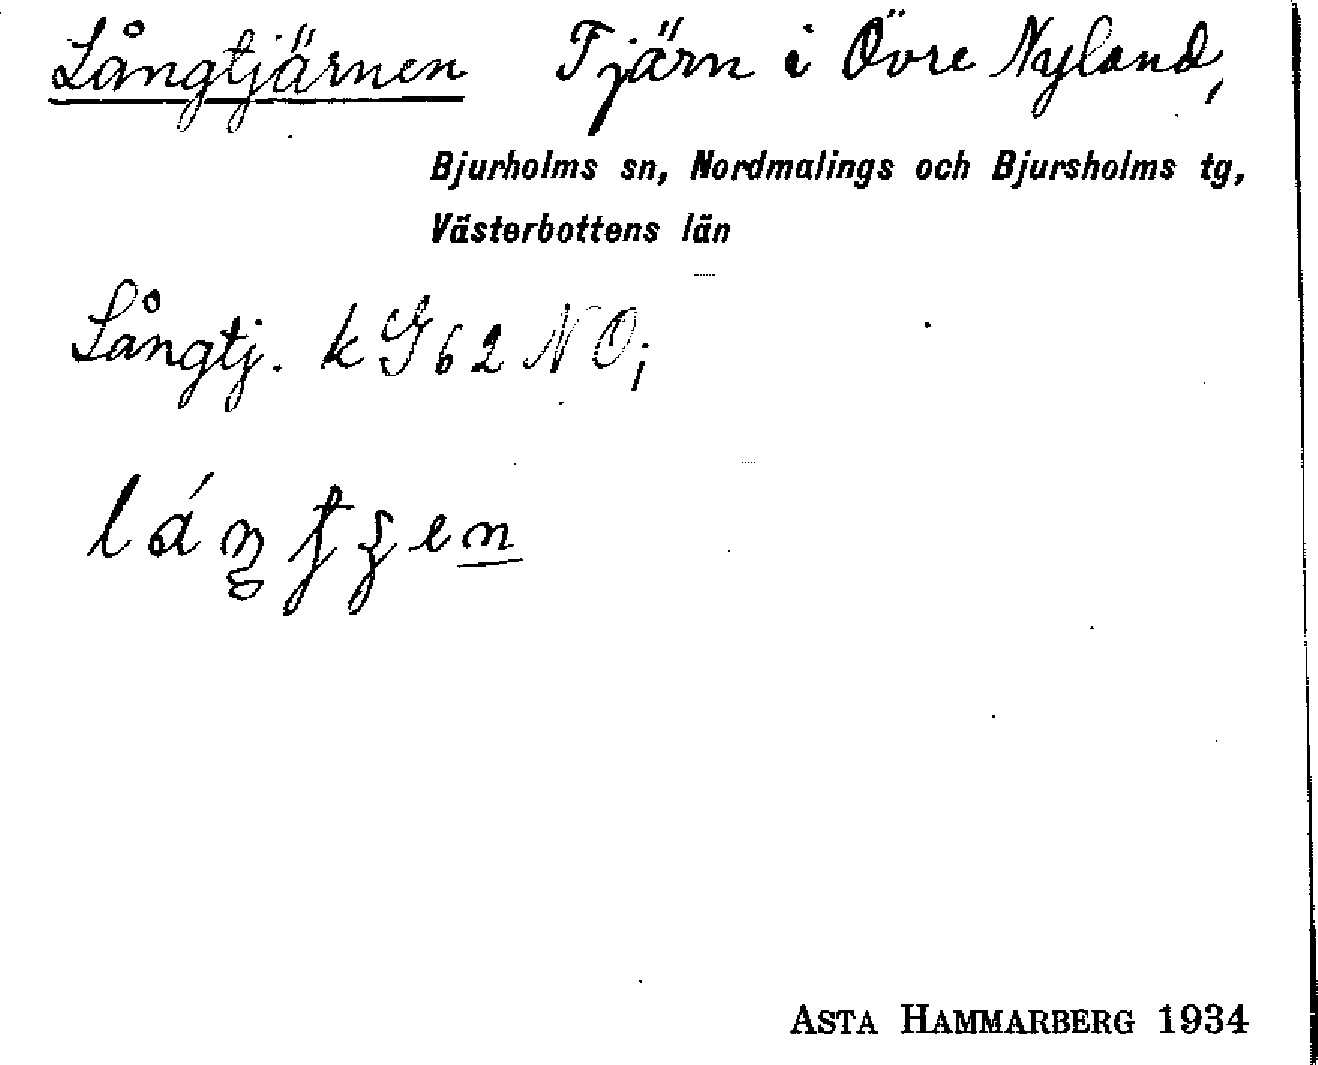 Långtjärnen Tjärn i Övre Nyland,
Bjurholms sn, Nordmalings och Bjursholms tg,
Västerbottens län
Långtj. kG62NO;
ASTA HAMMARBERG 1934